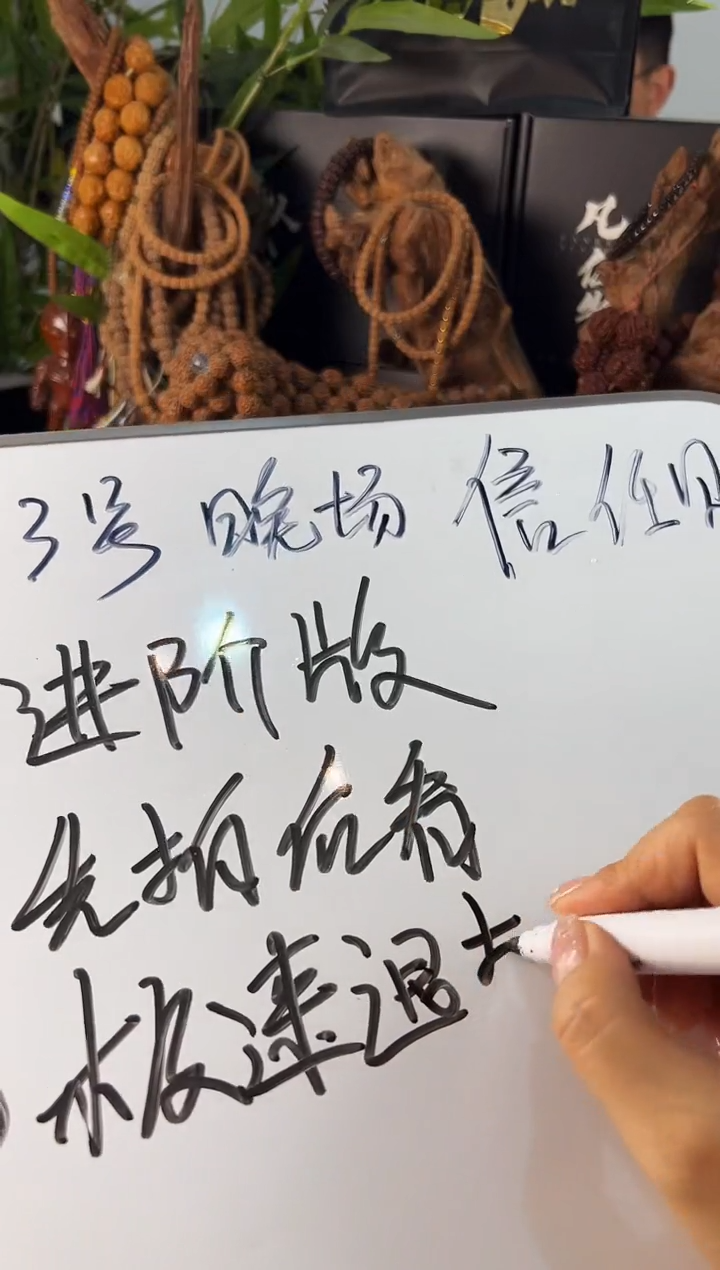 凡
3号 晚场 信任
进阶版
先拍后看
极速退